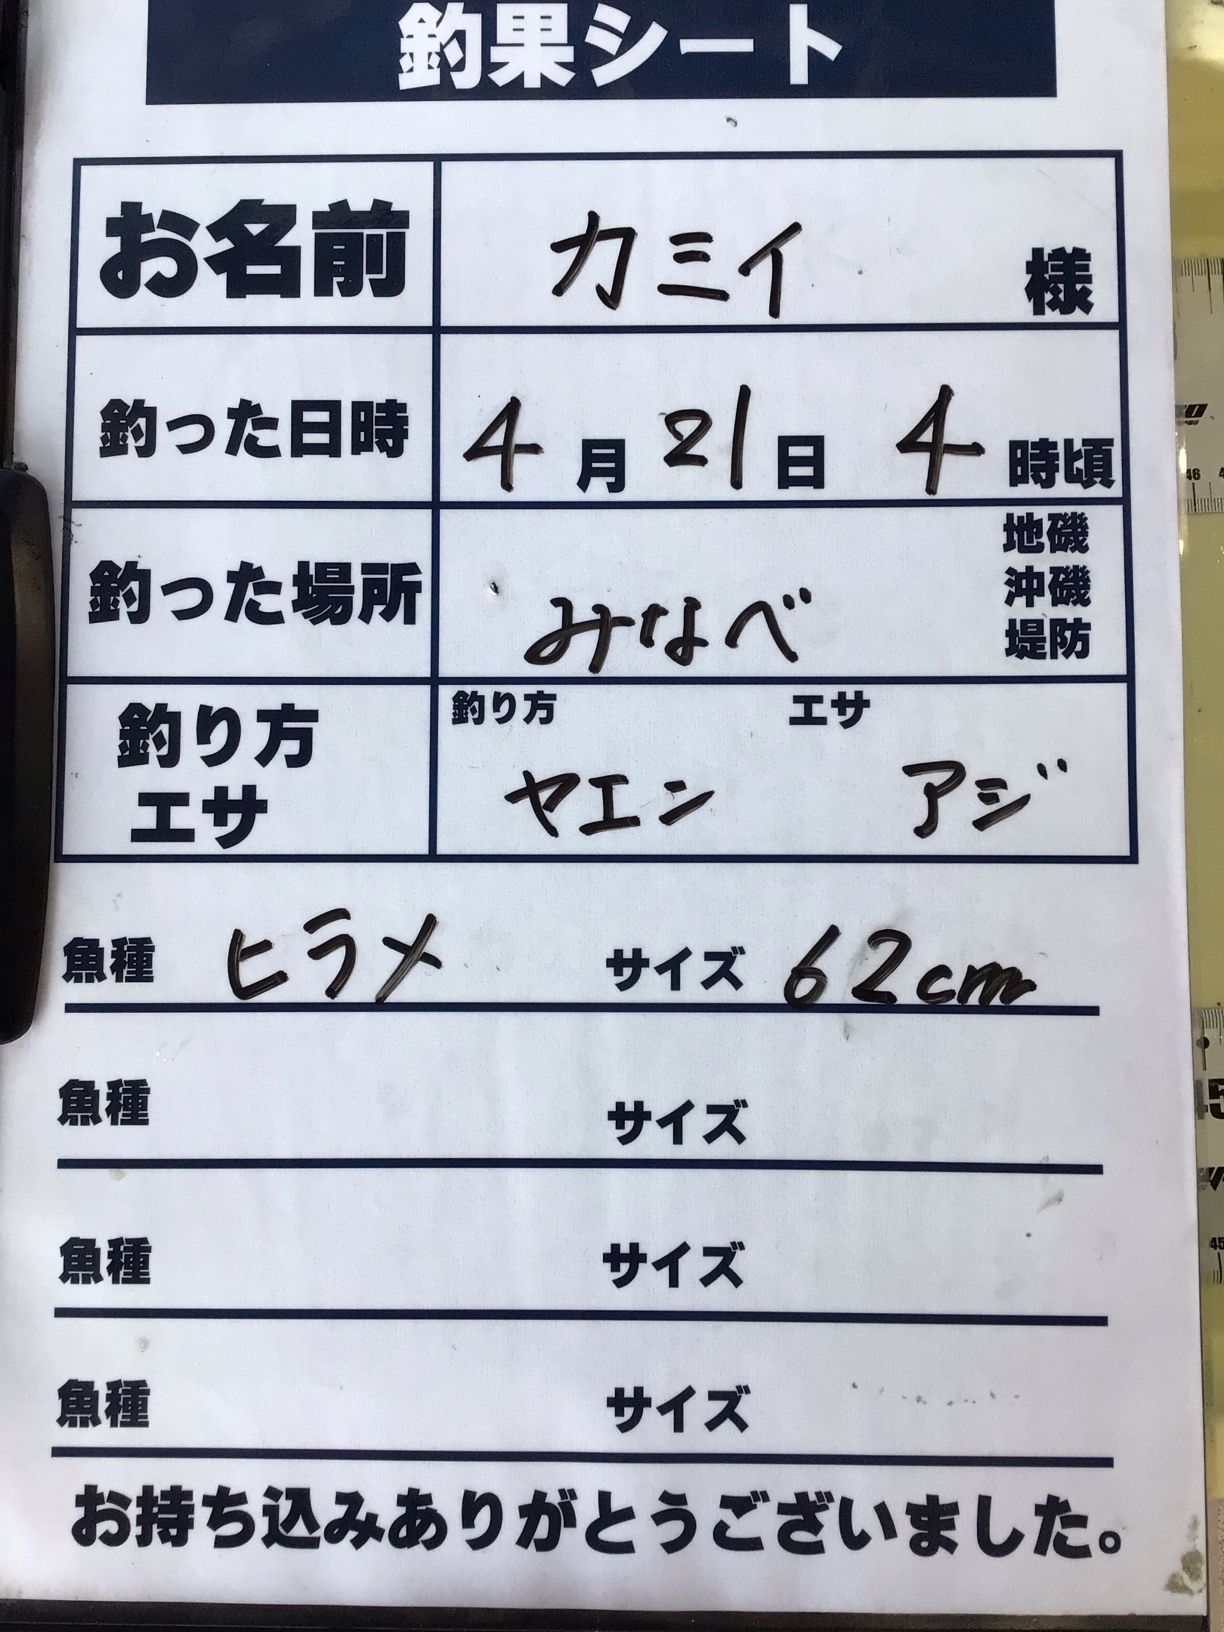 釣果シート
お名前 カミイ 様
釣った日時 4月21日 4時頃
釣った場所 みなべ 地磯
沖磯
堤防
釣り方 エサ
釣り方
エサ
ヤエン アジ
魚種 ヒラメ サイズ 62cm
魚種 サイズ
魚種 サイズ
魚種 サイズ
お持ち込みありがとうございました。
46
45
45